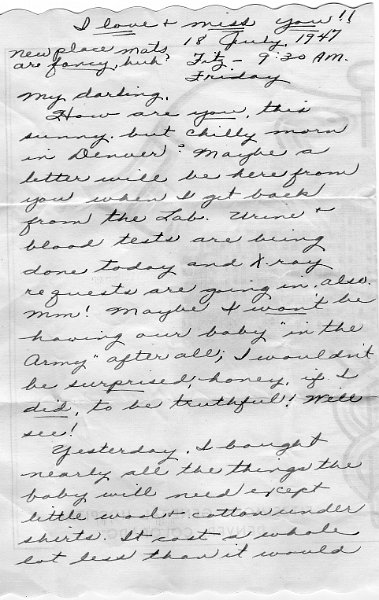 I love & miss you!!
new place mats 18 July, 1947
are fancy, huh? Fitz - 9:30 AM.
Friday
My darling,
How are you, this
sunny, but chilly morn
in Denver? Maybe a
letter will be here from
you when I get back
from the Lab. Urine &
blood tests are being
done today and X-ray
requests are going in, also.
Mm! Maybe I won't be
having our baby "in the
Army" after all; I wouldn't
be surprised, honey, if I
did, to be truthful! Will
see!
Yesterday, I bought
nearly all the things the
baby will need except
little wool & cotton under
shirts. It cost a whole
lot less than it would